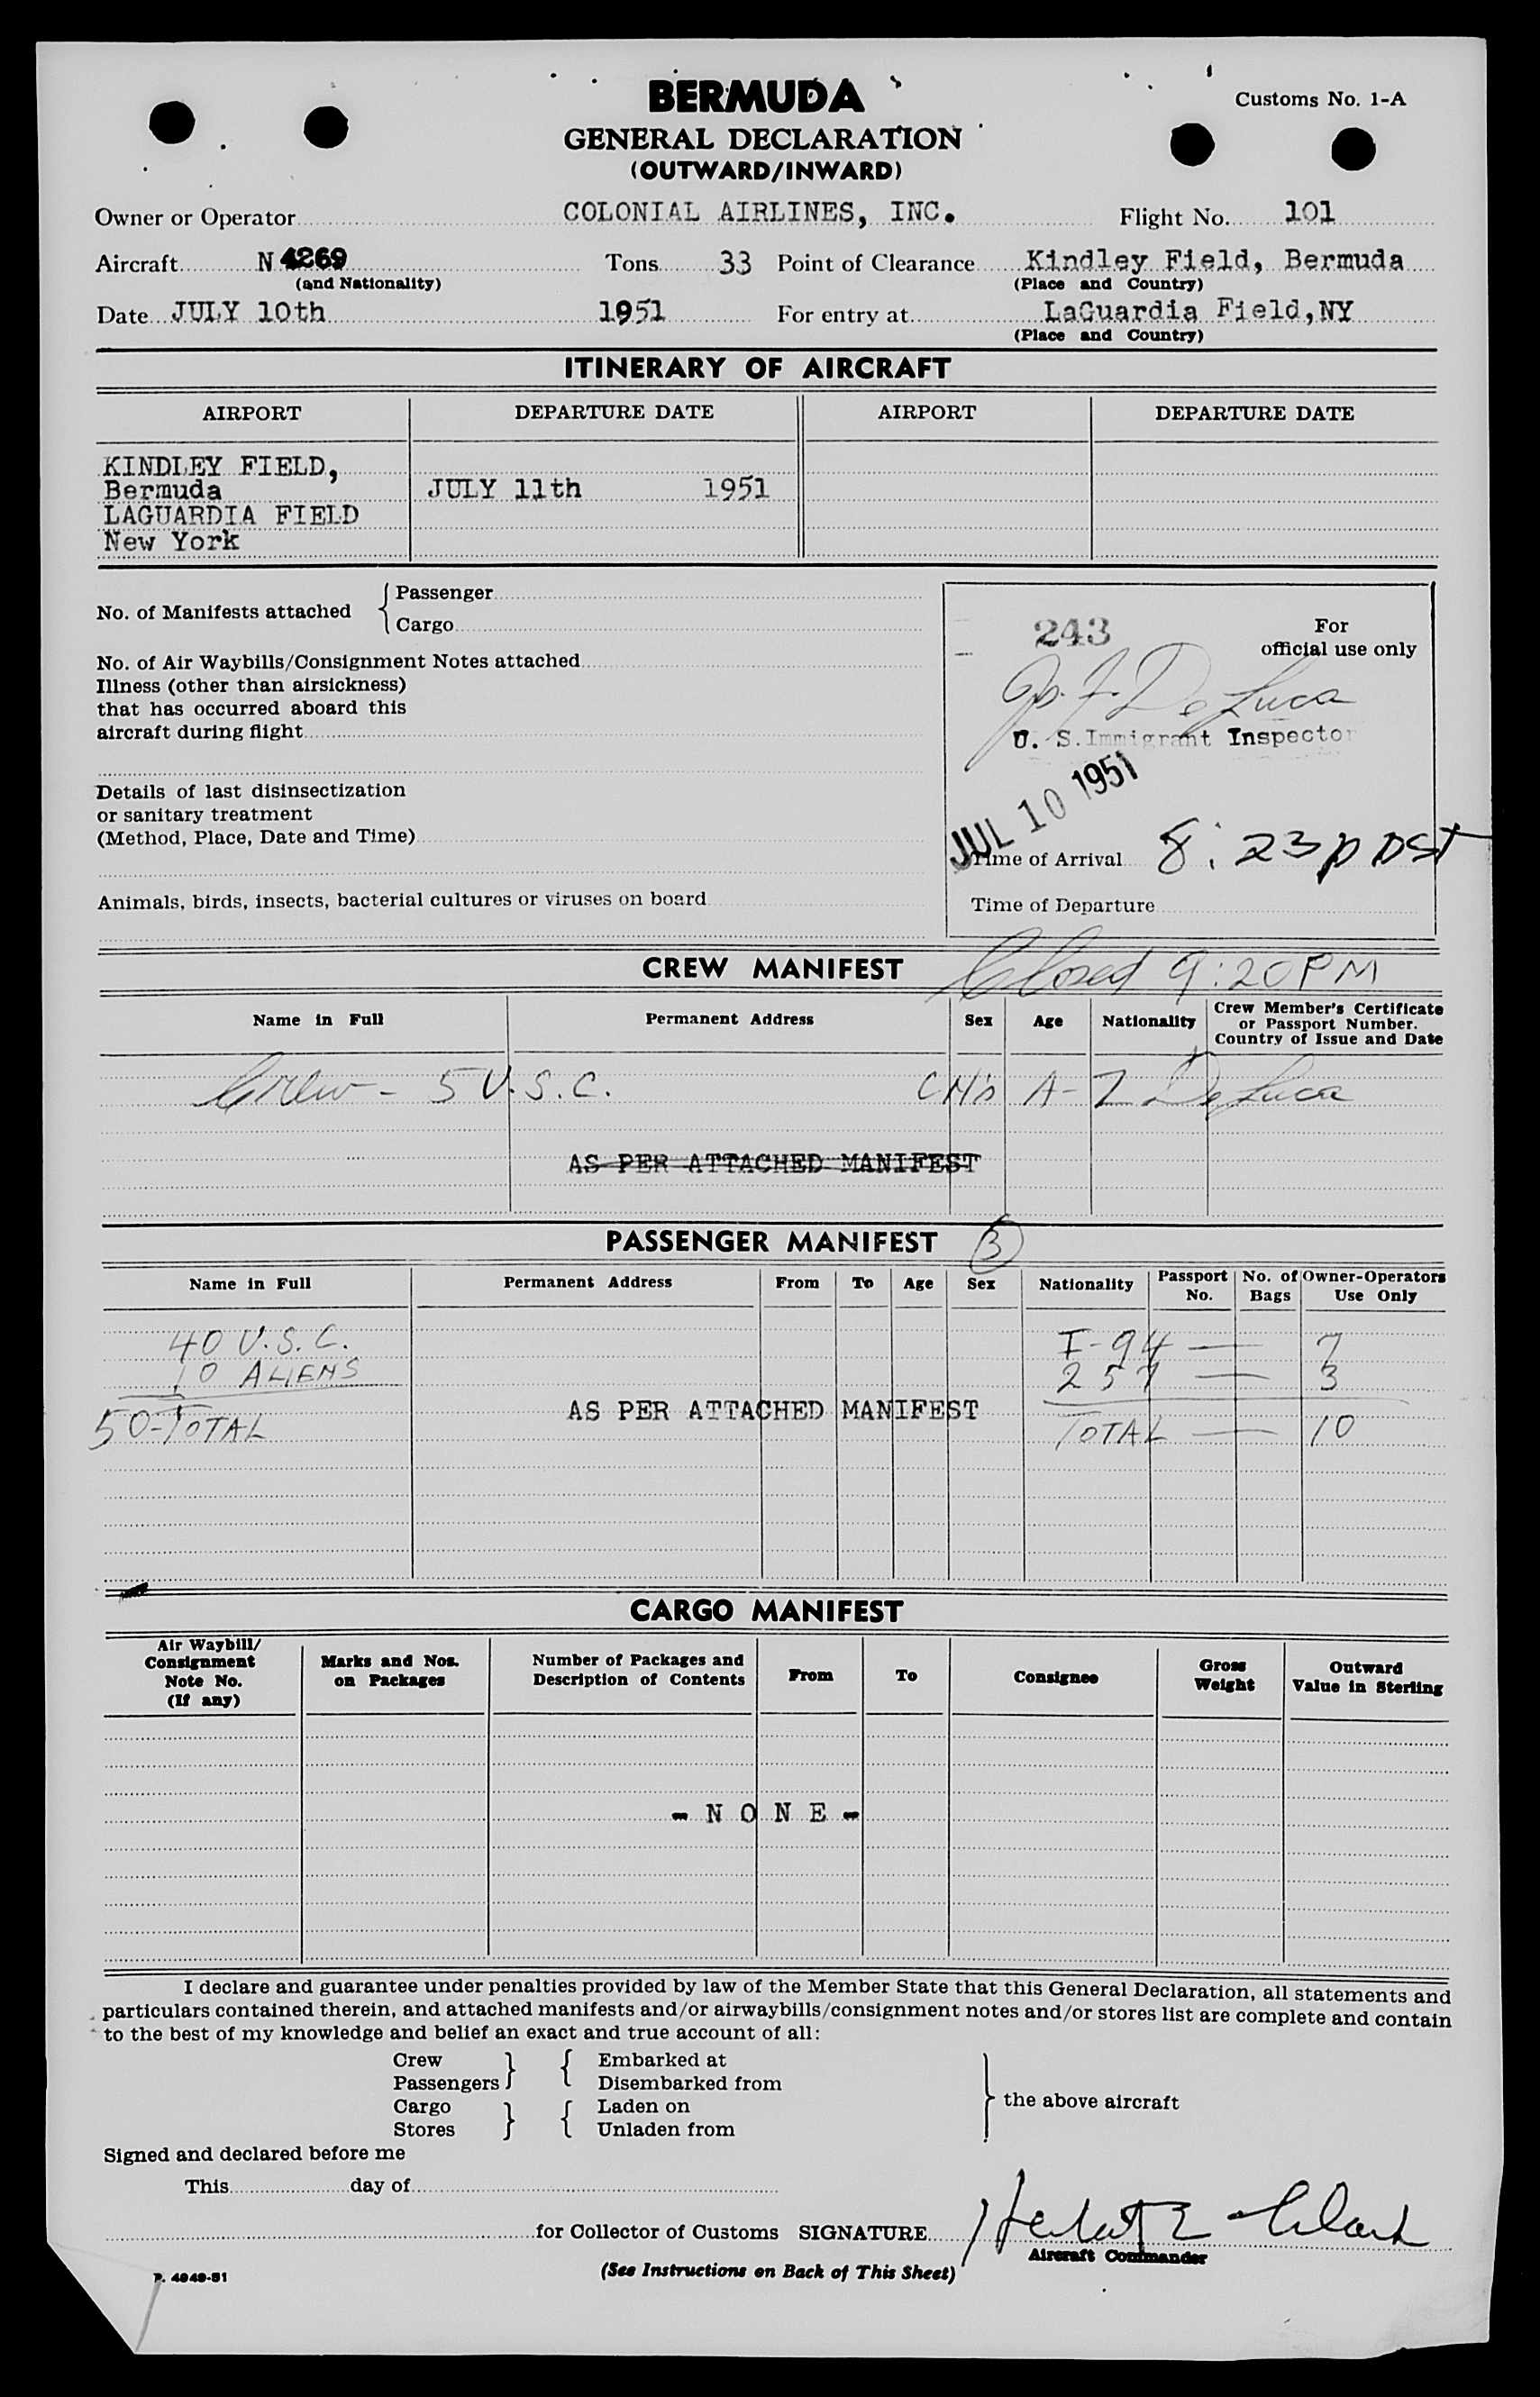 BERMUDA
Customs No. 1-A
GENERAL DECLARATION
(OUTWARD/INWARD)
Owner or Operator COLONIAL AIRLINES, INC. Flight No. 101
Aircraft N 4269 Tons 33 Point of Clearance Kindley Field, Bermuda
(and Nationality) (Place and Country)
Date JULY 10th 1951 For entry at LaGuardia Field,NY
(Place and Country)
ITINERARY OF AIRCRAFT
AIRPORT DEPARTURE DATE AIRPORT DEPARTURE DATE
KINDLEY FIELD,
Bermuda JULY 11th 1951
LAGUARDIA FIELD
New York
No. of Manifests attached
Passenger
Cargo
No. of Air Waybills/Consignment Notes attached
Illness (other than airsickness)
that has occurred aboard this
aircraft during flight
Details of last disinsectization
or sanitary treatment
(Method, Place, Date and Time)
Animals, birds, insects, bacterial cultures or viruses on board
243 For
official use only
De Luca
U. S. Immigrant Inspector
JUL 10 1951
Time of Arrival 8:23p DST
Time of Departure
Closed 9:20 PM
CREW MANIFEST
Name in Full Permanent Address Sex Age Nationality Crew Member's Certificate
or Passport Number.
Country of Issue and Date
Crew - 5 U.S.C. De Luca
AS PER ATTACHED MANIFEST
PASSENGER MANIFEST 3
Name in Full Permanent Address From To Age Sex Nationality Passport No. No. of Bags Owner-Operators Use Only
40 U.S.C. I-94 — 7
10 ALIENS 257 — 3
AS PER ATTACHED MANIFEST
50-TOTAL TOTAL — 10
CARGO MANIFEST
Air Waybill/
Consignment
Note No.
(If any)
Marks and Nos.
on Packages
Number of Packages and
Description of Contents
From To Consignee
Gross
Weight
Outward
Value in Sterling
- N O N E -
I declare and guarantee under penalties provided by law of the Member State that this General Declaration, all statements and
particulars contained therein, and attached manifests and/or airwaybills/consignment notes and/or stores list are complete and contain
to the best of my knowledge and belief an exact and true account of all:
Crew Embarked at
Passengers Disembarked from
Cargo Laden on
Stores Unladen from
the above aircraft
Signed and declared before me
This day of
for Collector of Customs SIGNATURE Herbert E Clark
Aircraft Commander
(See Instructions on Back of This Sheet)
P. 4949-51